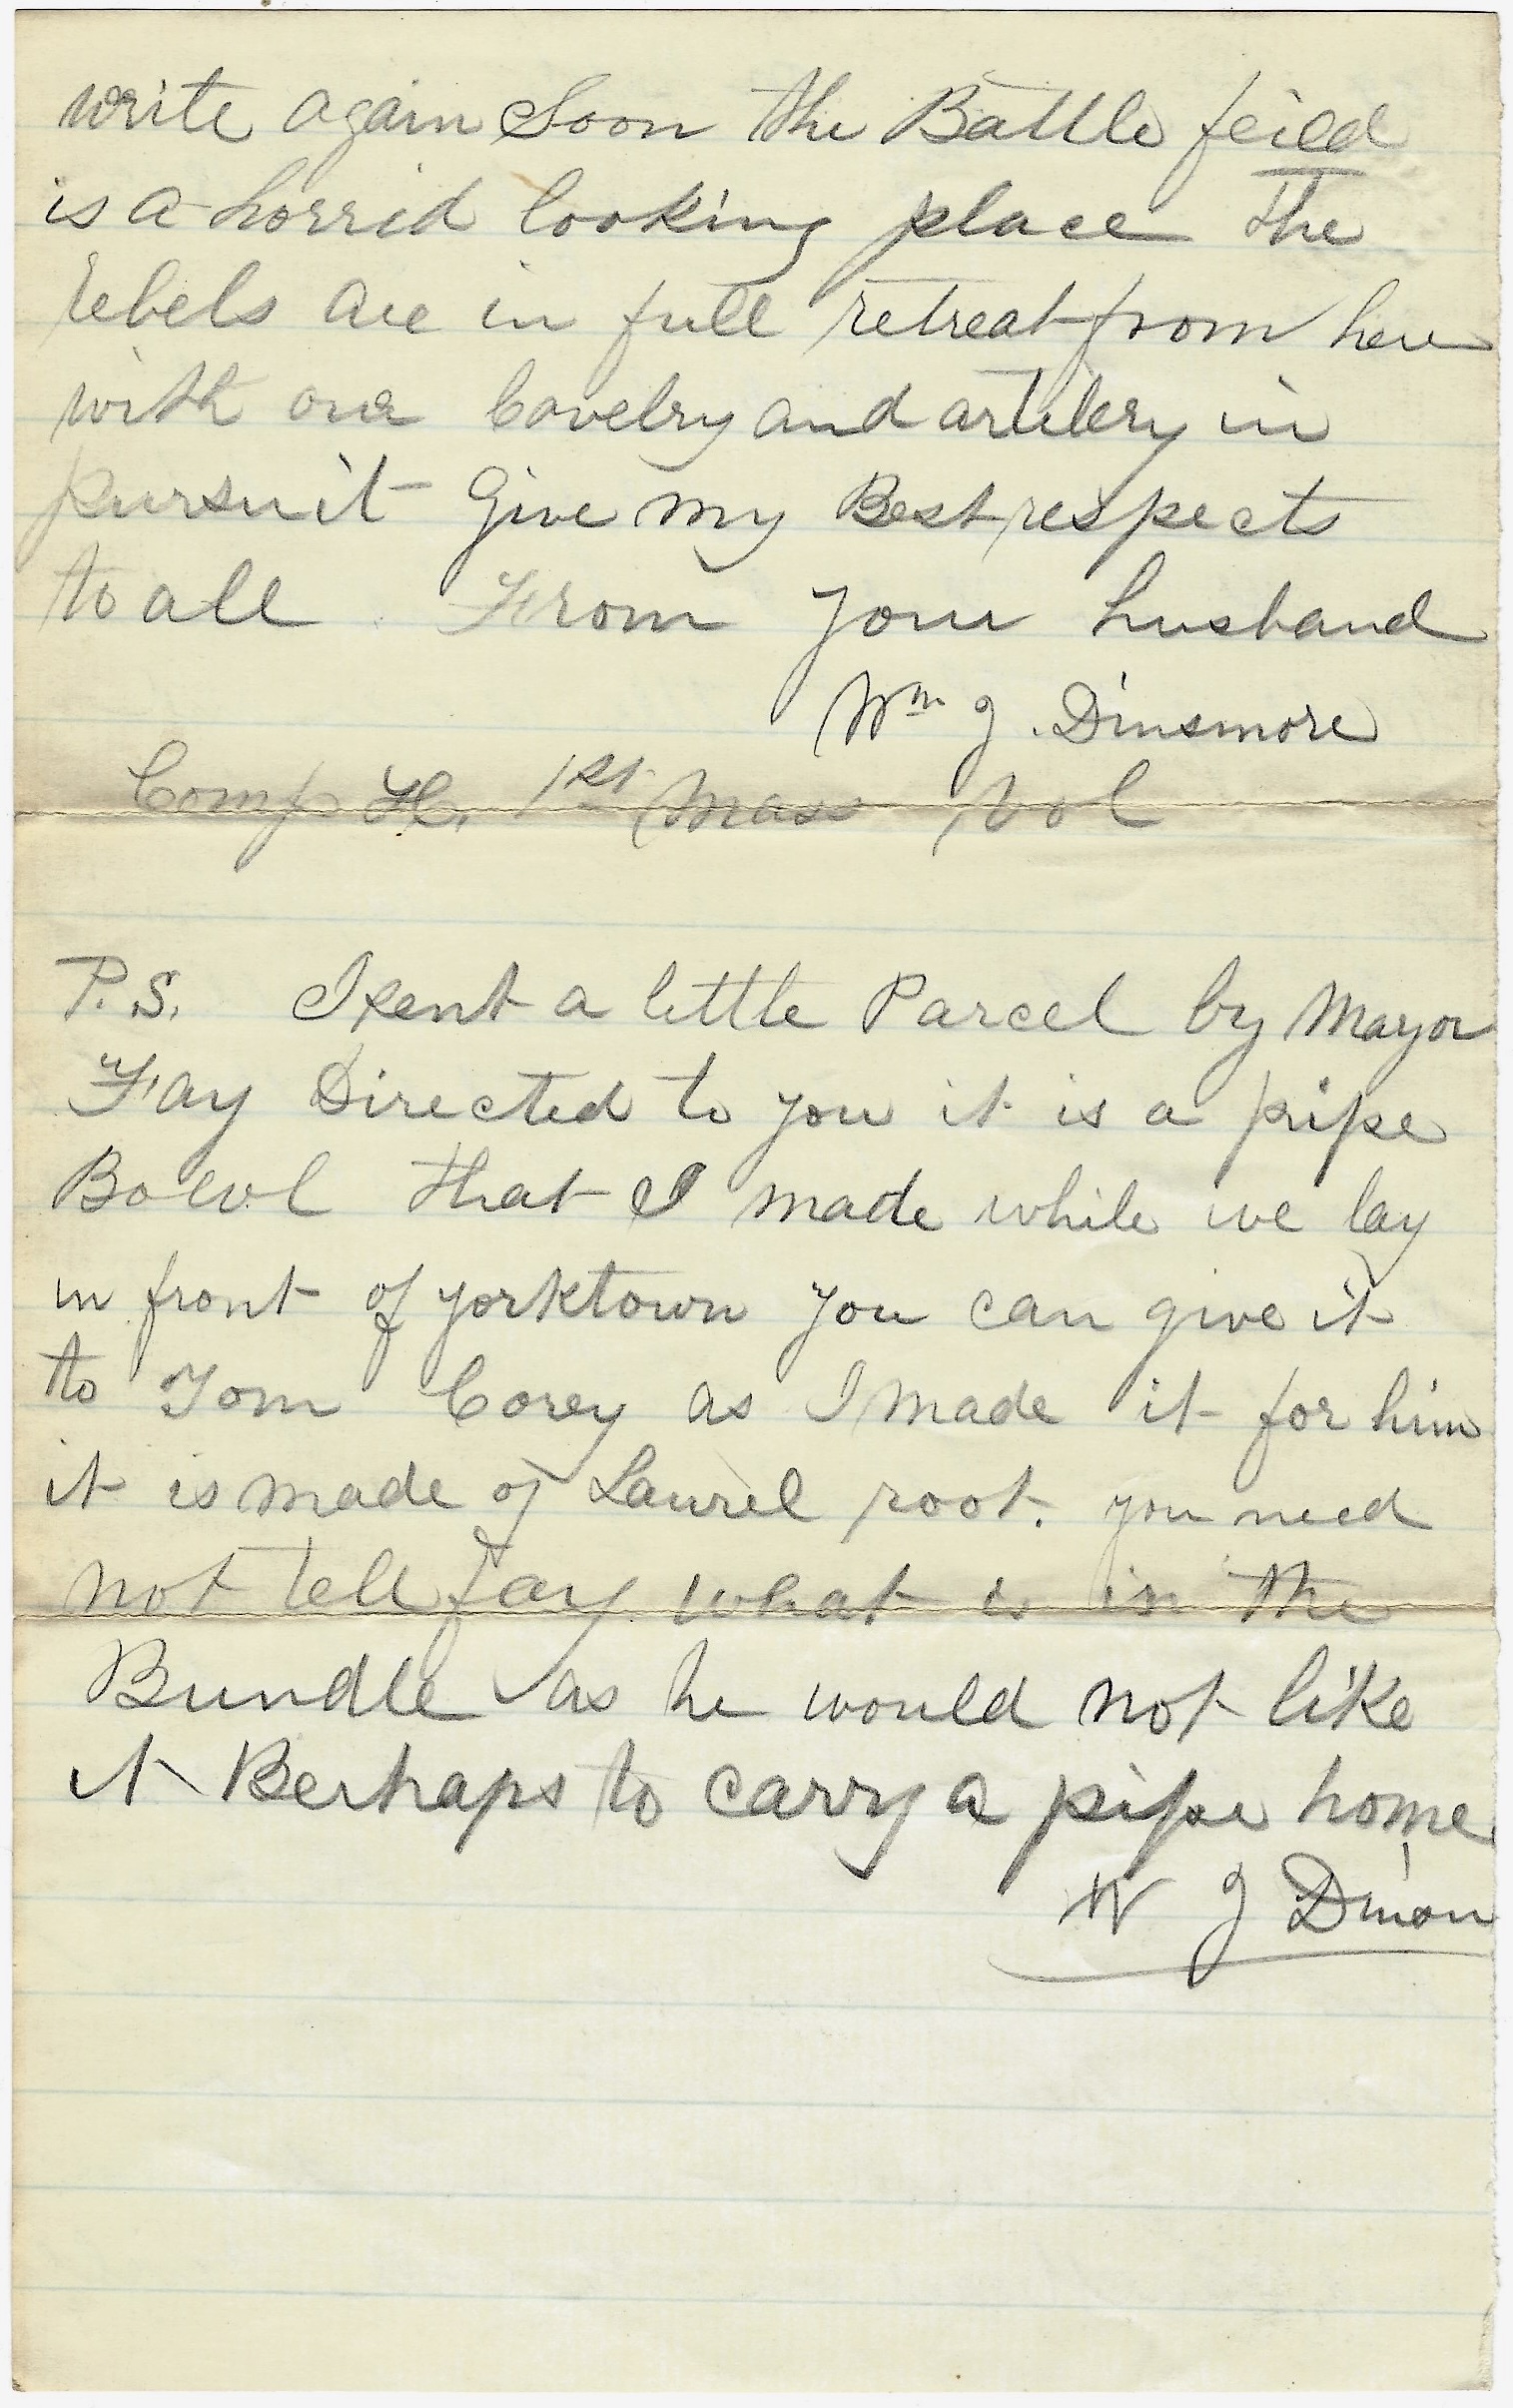 write again Soon the Battle feild
is a horrid looking place The
rebels are in full retreat from here
with our Cavelry and artilery in
pursuit Give my Best respects
to all From your husband
Wm J. Dinsmore
Comp H. 1st Mass Vol
P.S. I sent a little Parcel by Mayor
Fay Directed to you it is a pipe
Bowl that I made while we lay
in front of yorktown you can give it
to Tom Corey as I made it for him
it is made of Laurel root. you need
not tell fay what is in the
Bundle as he would not like
it Berhaps to carry a pipe home
W J